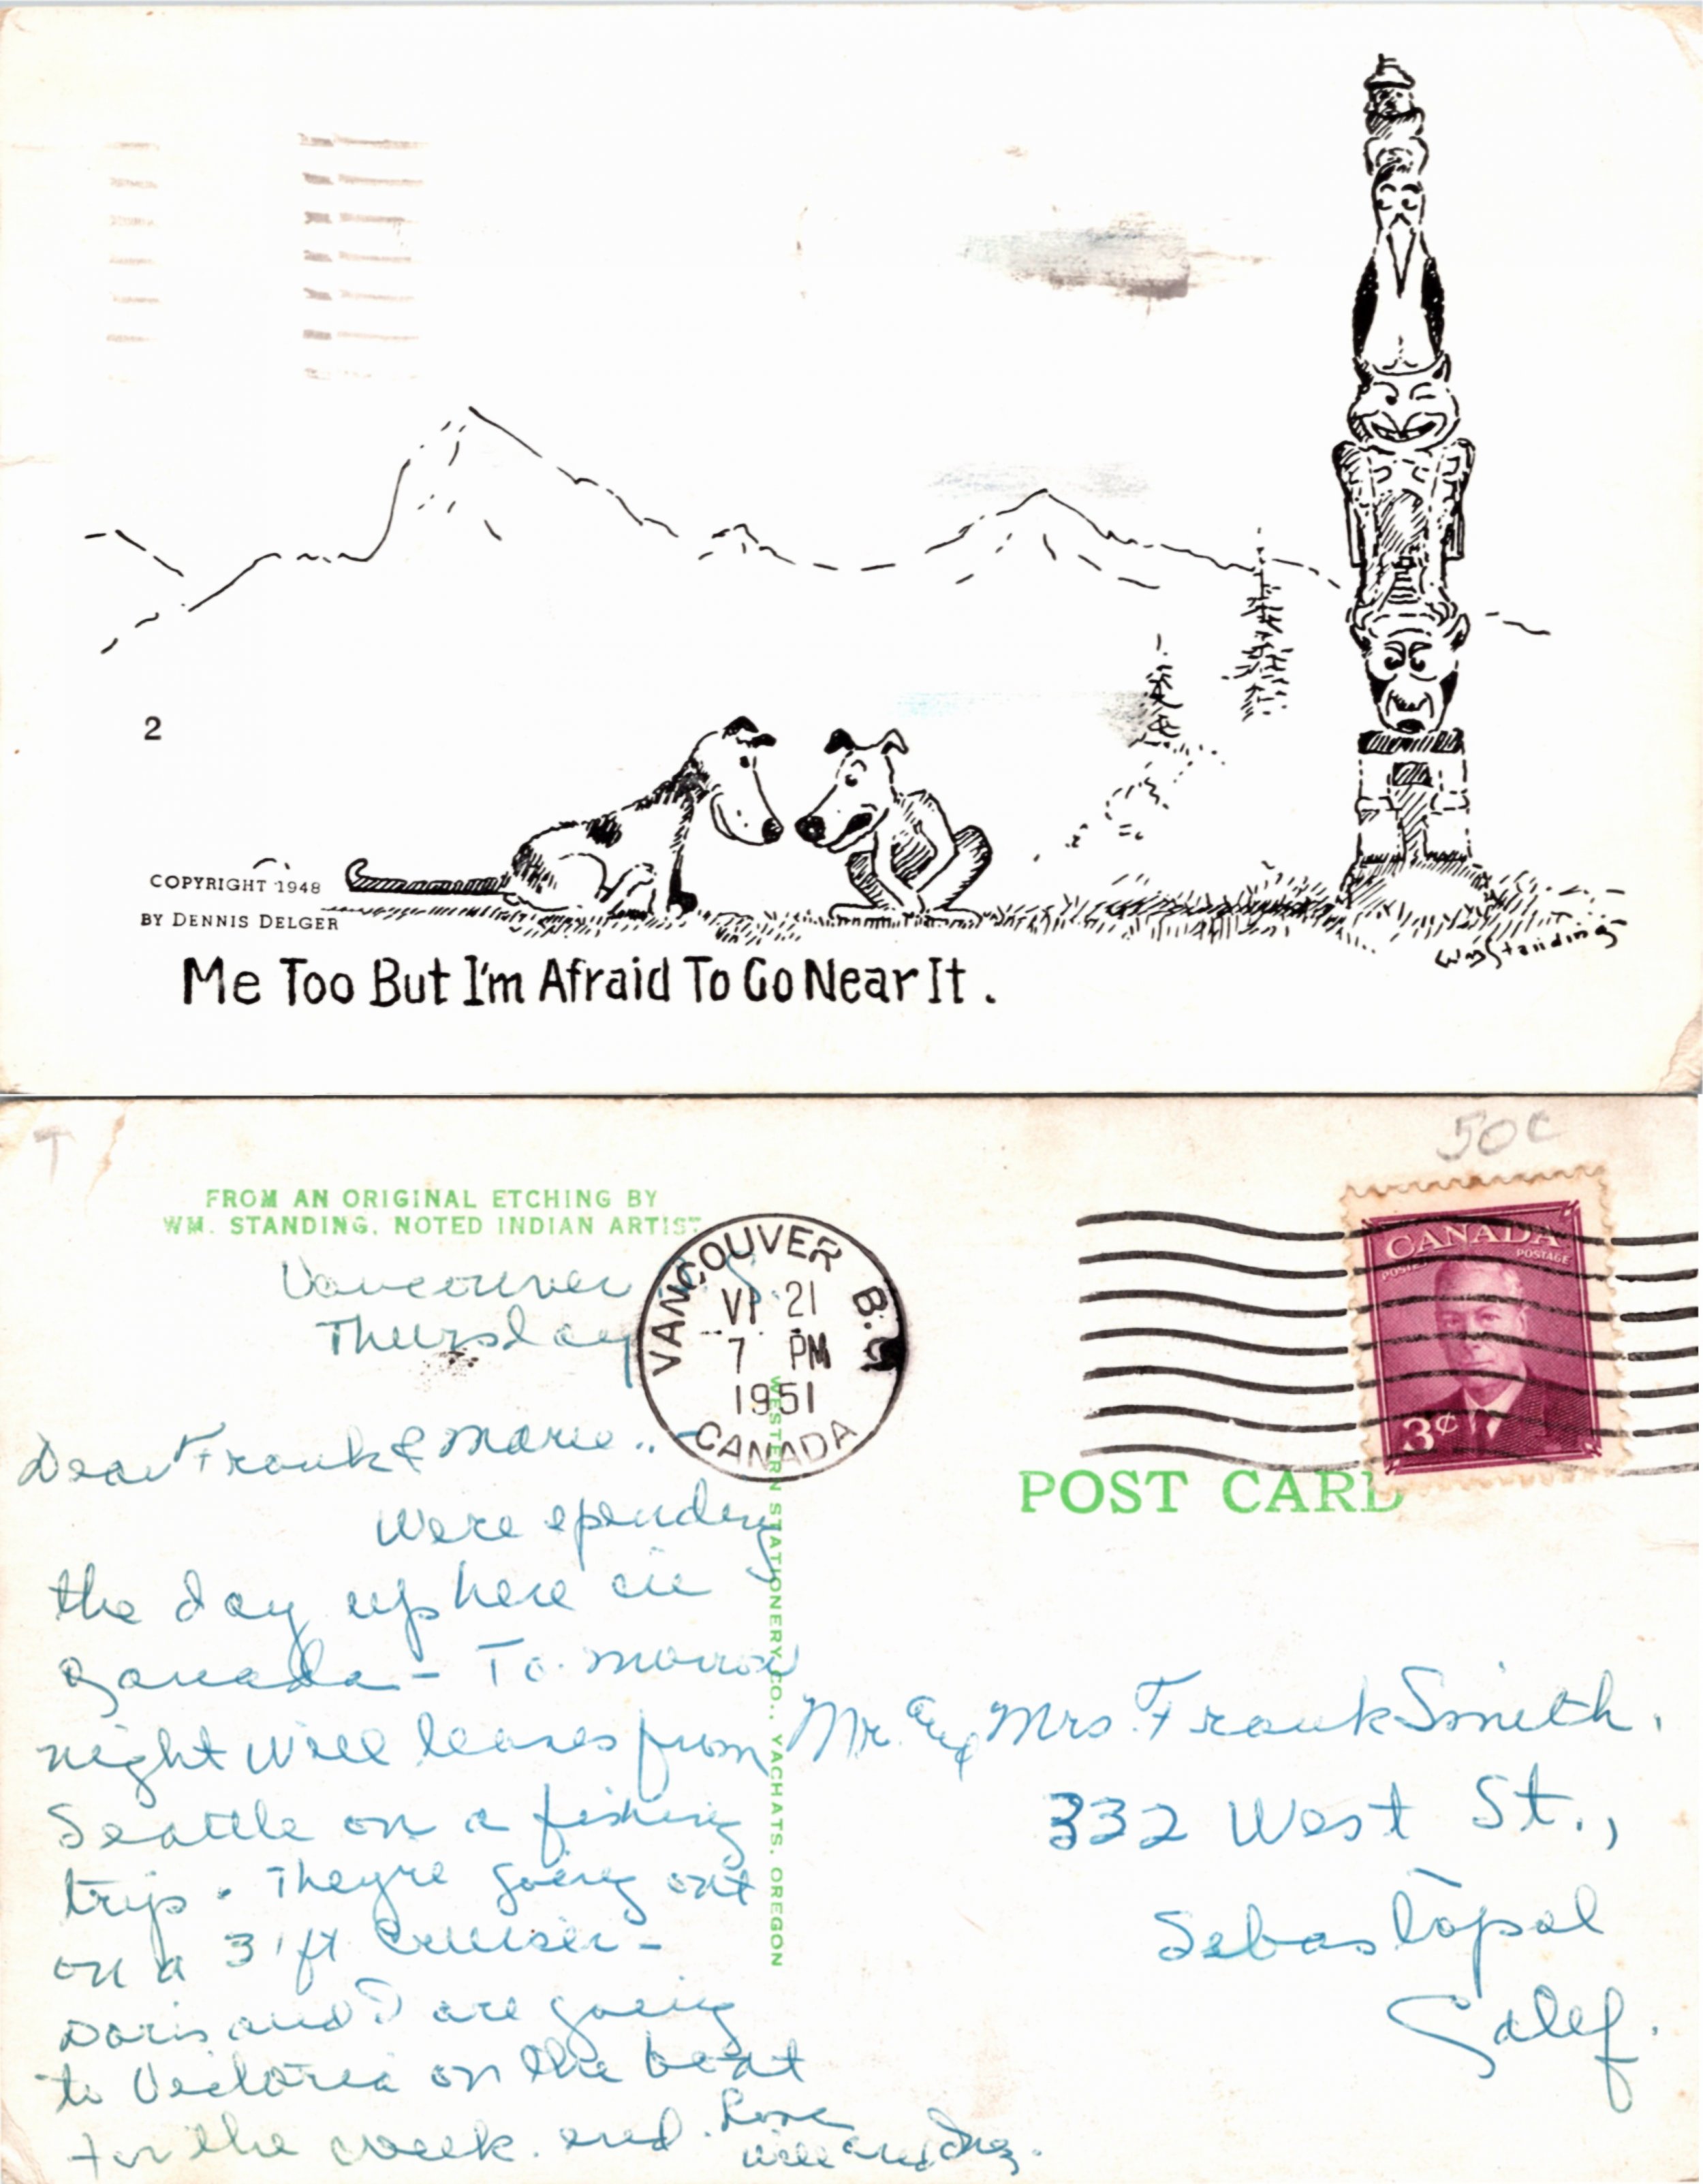 2
COPYRIGHT 1948
BY DENNIS DELGER
Wm Standing
Me Too But I'm Afraid To Go Near It.
T
50¢
FROM AN ORIGINAL ETCHING BY
WM. STANDING, NOTED INDIAN ARTIST
VANCOUVER B.C.
VI 21
7 PM
1951
CANADA
CANADA
POSTES POSTAGE
3¢
POST CARD
WESTERN STATIONERY CO., YACHATS, OREGON
Vancouver
Thursday
Dear Frank & Marie..
Were spending
the day up here in
Canada - To-morrow
night Will leaves from
Seattle on a fishing
trip. Theyre going out
on a 31 ft Cruiser -
Doris and I are going
to Victoria on the boat
for the week-end. Love
Will and
Mr. & Mrs. Frank Smith,
332 West St.,
Sebastopol
Calif.